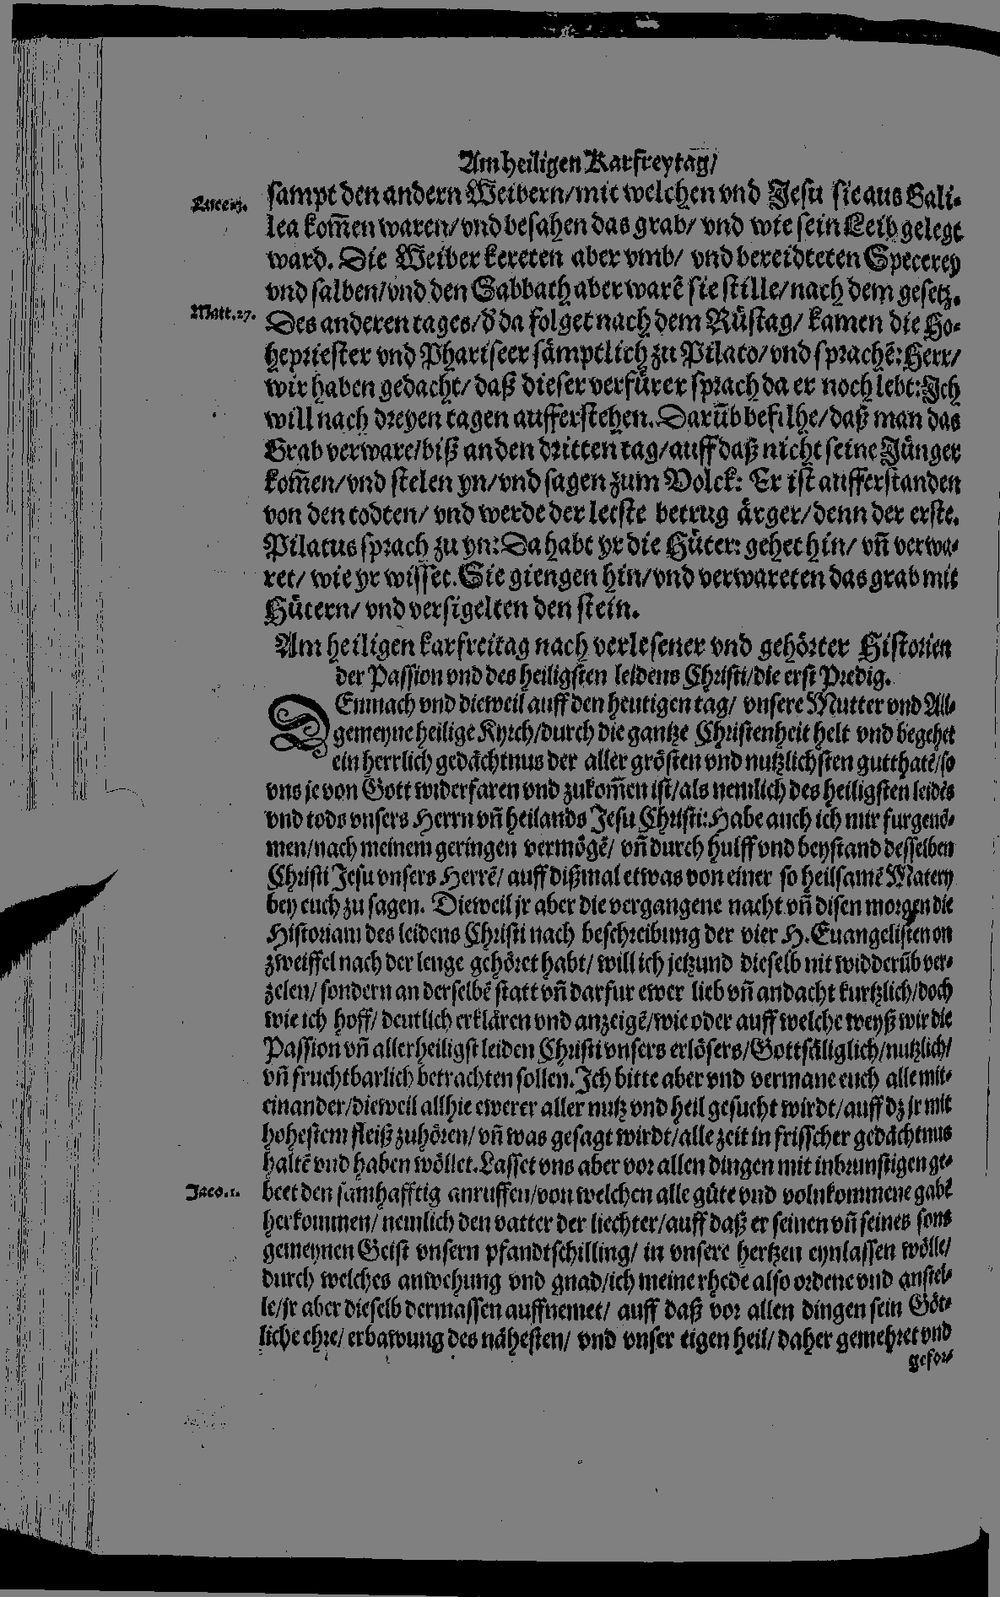 Am heiligen Karfreytag/
sampt den andern Weibern/mit welchen vnd Jesu sie aus Gali-
Luce 23.
lea kom̃en waren/vnd besahen das grab/ vnd wie sein Leib gelegt
ward. Die Weiber kereten aber vmb/ vnd bereidteten Specerey
vnd salben/vnd den Sabbath aber warẽ sie stille/nach dem gesetz.
Matt. 27.
Des anderen tages/ d̕ da folget nach dem Rüstag/ kamen die Ho-
hepriester vnd Phariseer sämptlich zu Pilato/vnd sprachẽ: Herr/
wir haben gedacht/ daß dieser verfürer sprach da er noch lebt: Ich
will nach dreyen tagen aufferstehen. Darüb befilhe/ daß man das
Grab verware/biß an den dritten tag/auff daß nicht seine Jünger
kom̃en/vnd stelen yn/vnd sagen zum Volck: Er ist aufferstanden
von den todten/ vnd werde der letste betrug ärger/denn der erste.
Pilatus sprach zu yn: Da habt yr die Hüter: gehet hin/ vñ verwa-
ret/ wie yr wisset. Sie giengen hin/vnd verwareten das grab mit
Hütern/ vnd versigelten den stein.
Am heiligen karfreitag nach verlesener vnd gehörter Historien
der Passion vnd des heiligsten leidens Christi/die erst Predig.
DEmnach vnd dieweil auff den heutigen tag/ vnsere Mutter vnd All-
gemeyne heilige Kyrch/durch die gantze Christenheit helt vnd begehet
ein herrlich gedächtnus der aller grösten vnd nutzlichsten gutthatẽ/so
vns je von Gott widerfaren vnd zukom̃en ist/als nemlich des heiligsten leidẽs
vnd tods vnsers Herrn vñ heilands Jesu Christi: Habe auch ich mir furgenõ-
men/nach meinem geringen vermögẽ/ vñ durch hulff vnd beystand desselben
Christi Jesu vnsers Herrẽ/ auff dißmal etwas von einer so heilsamẽ Matery
bey euch zu sagen. Dieweil jr aber die vergangene nacht vñ disen morgen die
Historiam des leidens Christi nach beschreibung der vier H. Euangelisten on
zweiffel nach der lenge gehöret habt/ will ich jetzund dieselb nit widderüb ver-
zelen/ sondern an derselbẽ statt vñ darfur ewer lieb vñ andacht kurtzlich/doch
wie ich hoff/ deutlich erklären vnd anzeigẽ/wie oder auff welche weyß wir die
Passion vñ allerheiligst leiden Christi vnsers erlösers/Gottsäliglich/nutzlich/
vñ fruchtbarlich betrachten sollen. Ich bitte aber vnd vermane euch alle mit-
einander/dieweil allhie ewerer aller nutz vnd heil gesucht wirdt/auff dz jr mit
hohestem fleiß zuhören/ vñ was gesagt wirdt/alle zeit in frisscher gedächtnus
haltẽ vnd haben wöllet. Lasset vns aber vor allen dingen mit inbrunstigen ge-
Jaco. 1.
beet den samhafftig anruffen/von welchen alle güte vnd volnkommene gabẽ
herkommen/ nemlich den vatter der liechter/auff daß er seinen vñ seines sons
gemeynen Geist vnsern pfandtschilling/ in vnsere hertzen eynlassen wölle/
durch welches anwehung vnd gnad/ich meine rhede also ordene vnd anstel-
le/jr aber dieselb dermassen auffnemet/ auff daß vor allen dingen sein Göt-
liche ehre/ erbawung des nähesten/ vnd vnser eigen heil/ daher gemehret vnd
gefor-